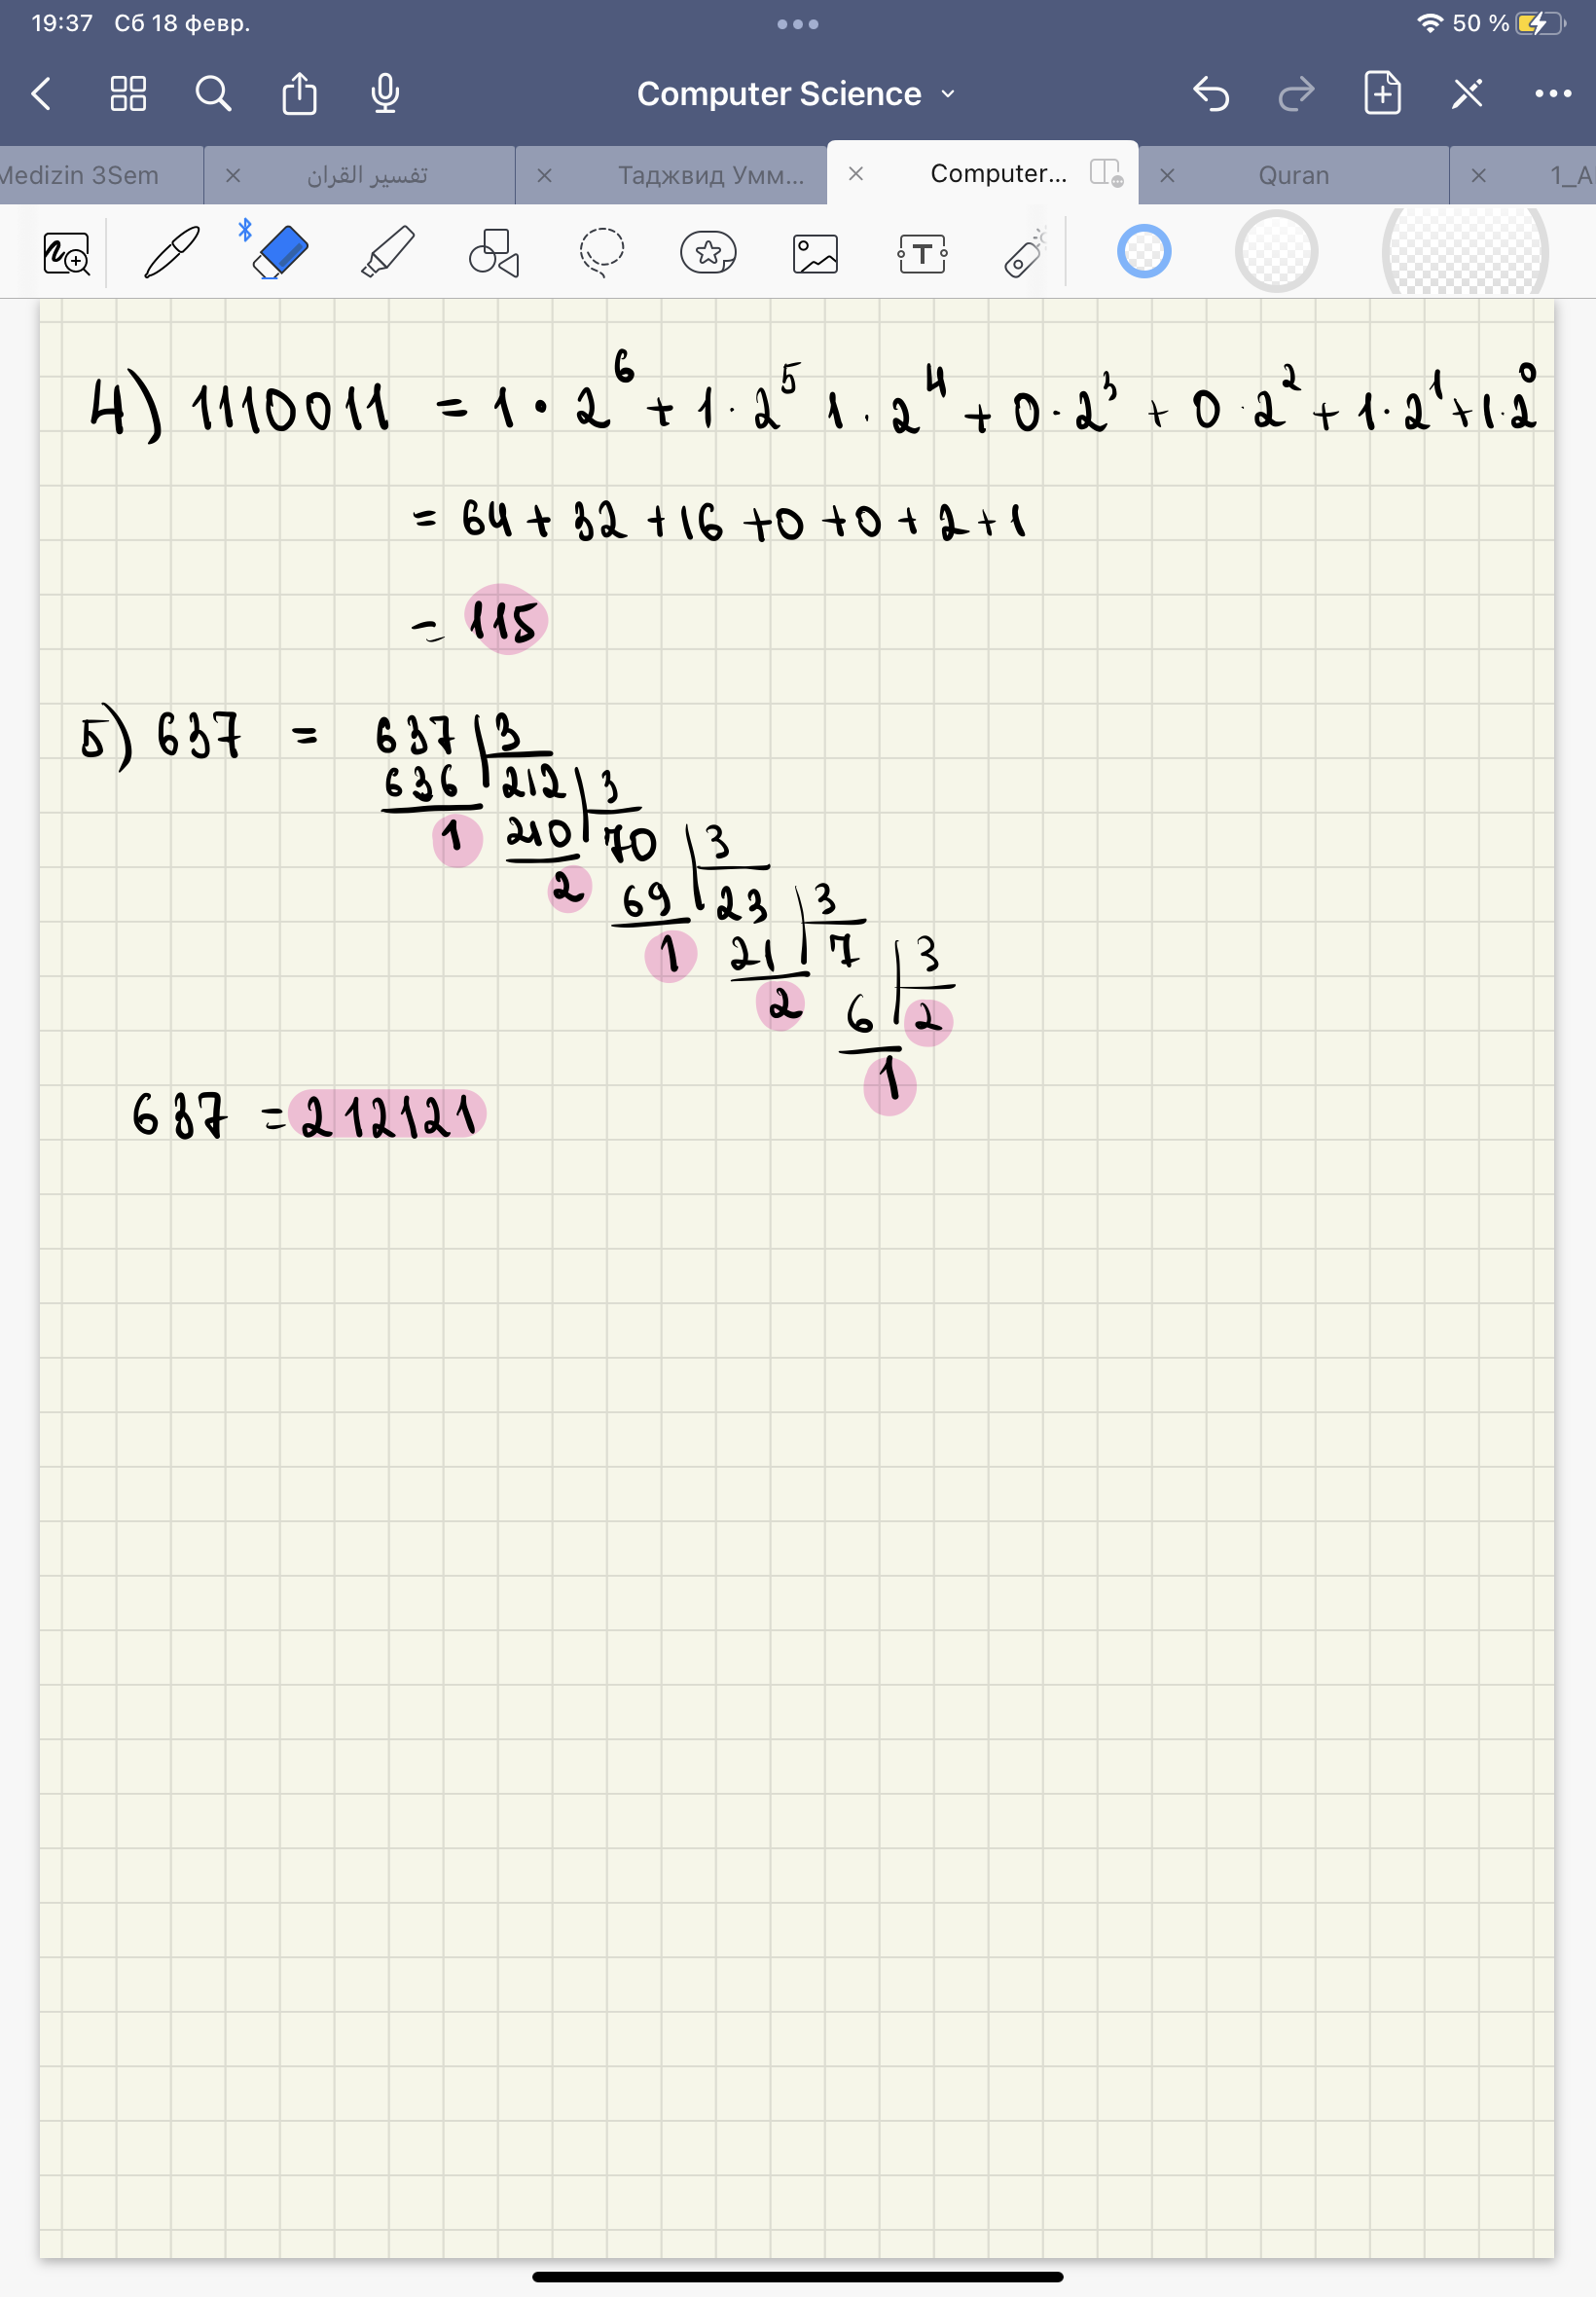 19:37 Сб 18 февр. 50 %
Computer Science
Medizin 3Sem تفسير القران Таджвид Умм... Computer... Quran 1_A
T
4) 1110011 = 1 · 2⁶ + 1 · 2⁵ 1 · 2⁴ + 0 · 2³ + 0 · 2² + 1 · 2¹ + 1 · 2⁰
= 64 + 32 + 16 + 0 + 0 + 2 + 1
= 115
5) 637 = 637 3
636 212 3
1 210 70 3
2 69 23 3
1 21 7 3
2 6 2
1
637 = 212121